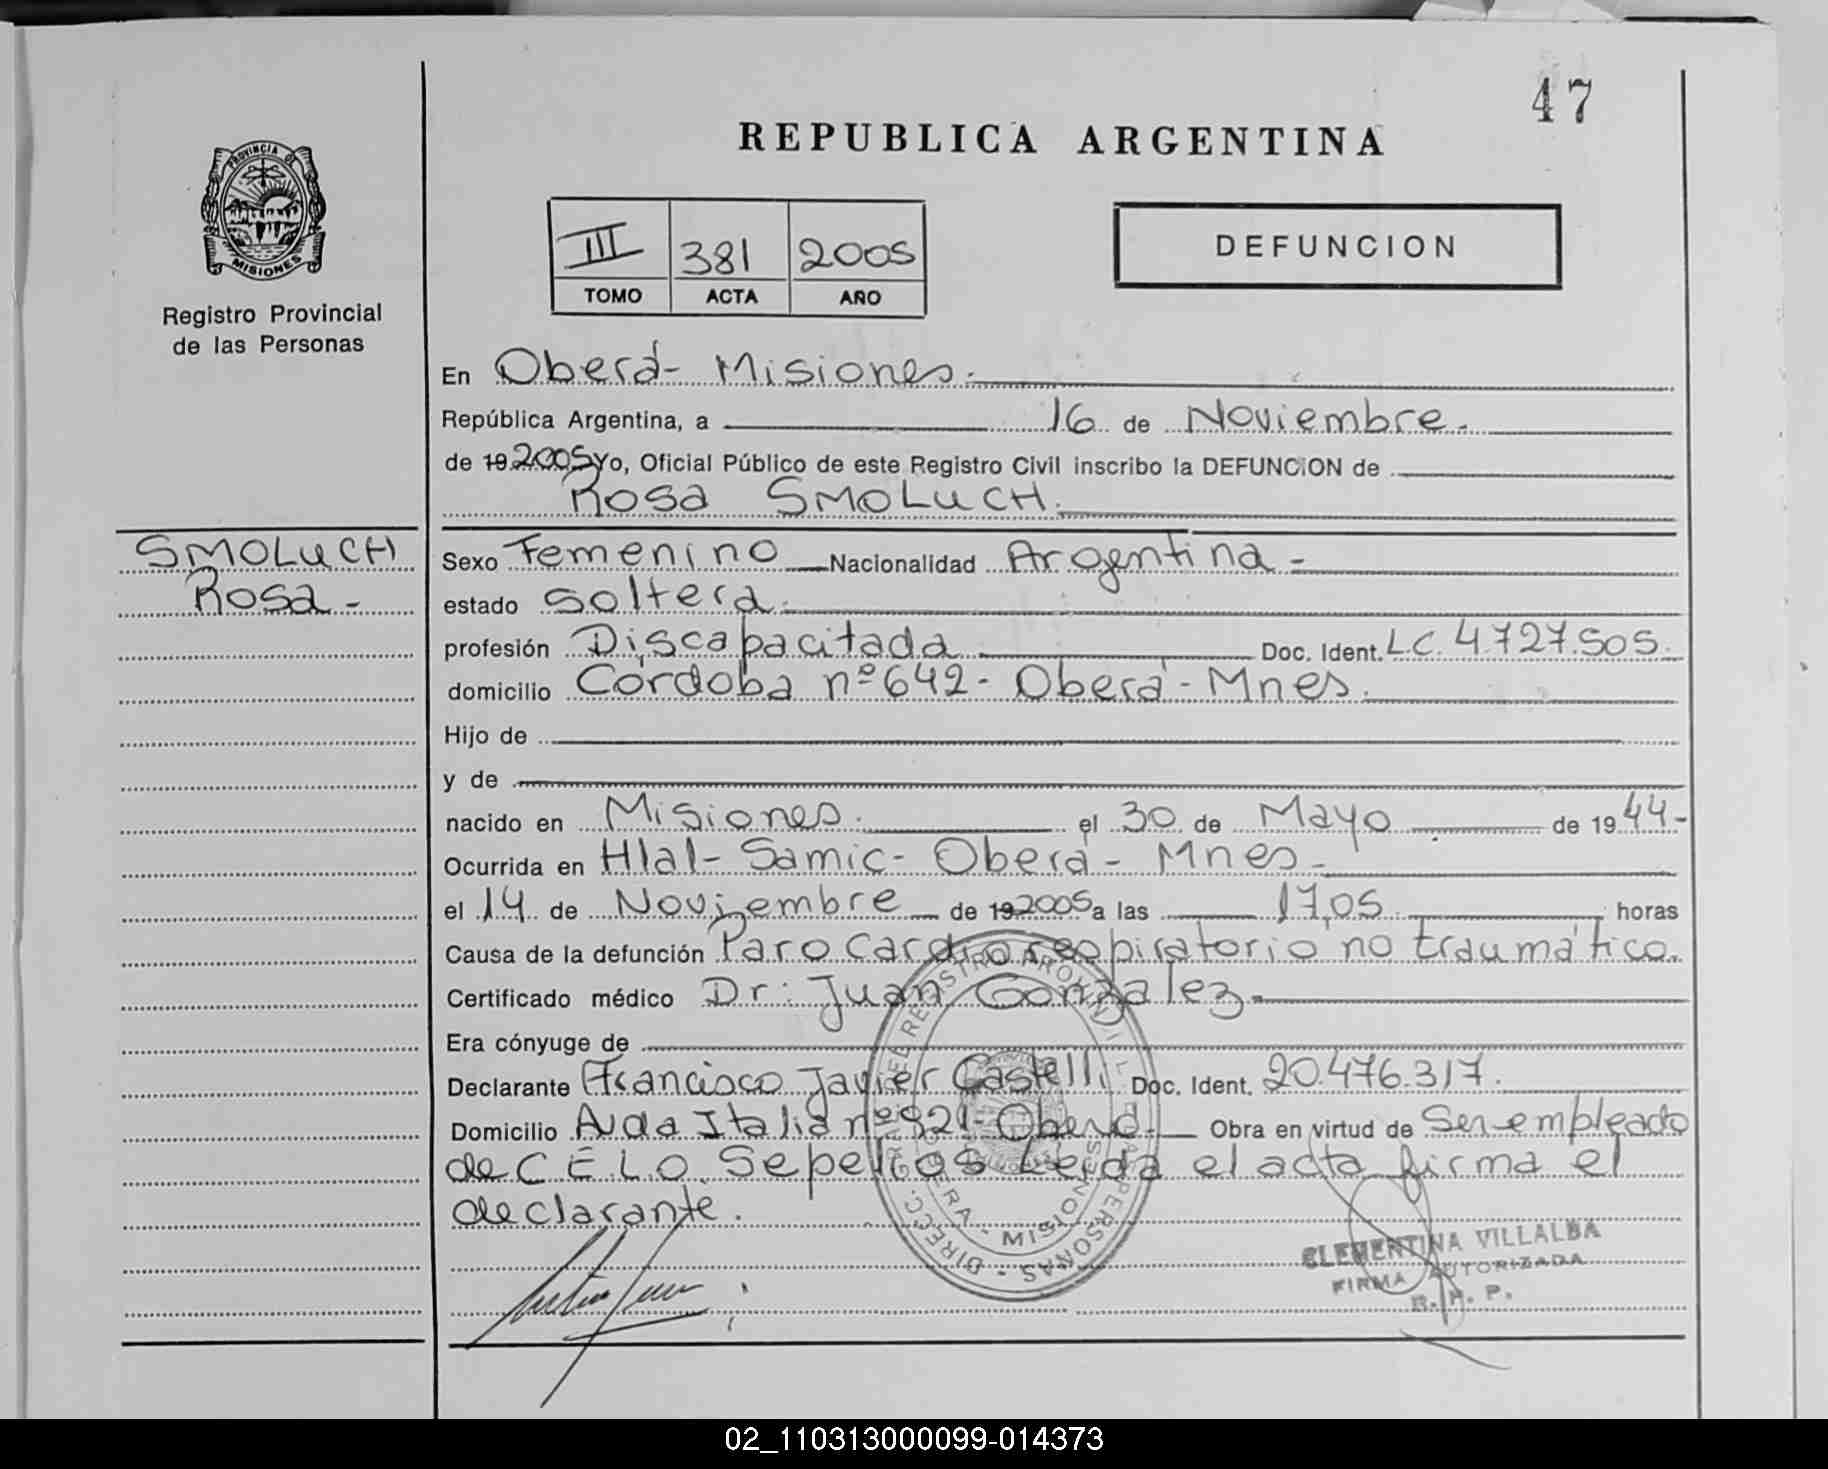 47
REPUBLICA ARGENTINA
PROVINCIA DE
MISIONES
Registro Provincial
de las Personas
III 381 2005
TOMO ACTA AÑO
DEFUNCION
En Oberá - Misiones.
República Argentina, a 16 de Noviembre.
de 19 2005 Yo, Oficial Público de este Registro Civil inscribo la DEFUNCION de
Rosa SMOLUCH.
SMOLUCH
Rosa -
Sexo Femenino Nacionalidad Argentina -
estado Soltera.
profesión Discapacitada Doc. Ident. L.C. 4.727.505.
domicilio Córdoba nº 642 - Oberá - Mnes.
Hijo de
y de
nacido en Misiones. el 30 de Mayo de 19 44 -
Ocurrida en Hlal - Samic - Oberá - Mnes -
el 14 de Noviembre de 19 2005 a las 17,05 horas
Causa de la defunción Paro Cardiorespiratorio no traumático.
Certificado médico Dr: Juan Gonzalez -
Era cónyuge de
Declarante Francisco Javier Castelli Doc. Ident. 20.476.317.
Domicilio Avda Italia nº 921 - Oberá - Obra en virtud de Ser empleado
de C.E.L.O. Sepelios Leida el acta firma el
declarante.
CLEMENTINA VILLALBA
FIRMA AUTORIZADA
R. P. P.
02_110313000099-014373